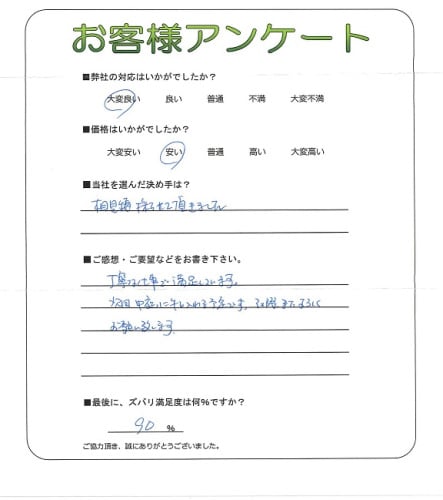 お客様アンケート
■弊社の対応はいかがでしたか？
大変良い 良い 普通 不満 大変不満
■価格はいかがでしたか？
大変安い 安い 普通 高い 大変高い
■当社を選んだ決め手は？
相見積 採らせて頂きました
■ご感想・ご要望などをお書き下さい。
丁寧な仕事で満足しています。
次回 に手入れる予定です。 またよろしく
お願い致します
■最後に、ズバリ満足度は何％ですか？
90 ％
ご協力頂き、誠にありがとうございました。